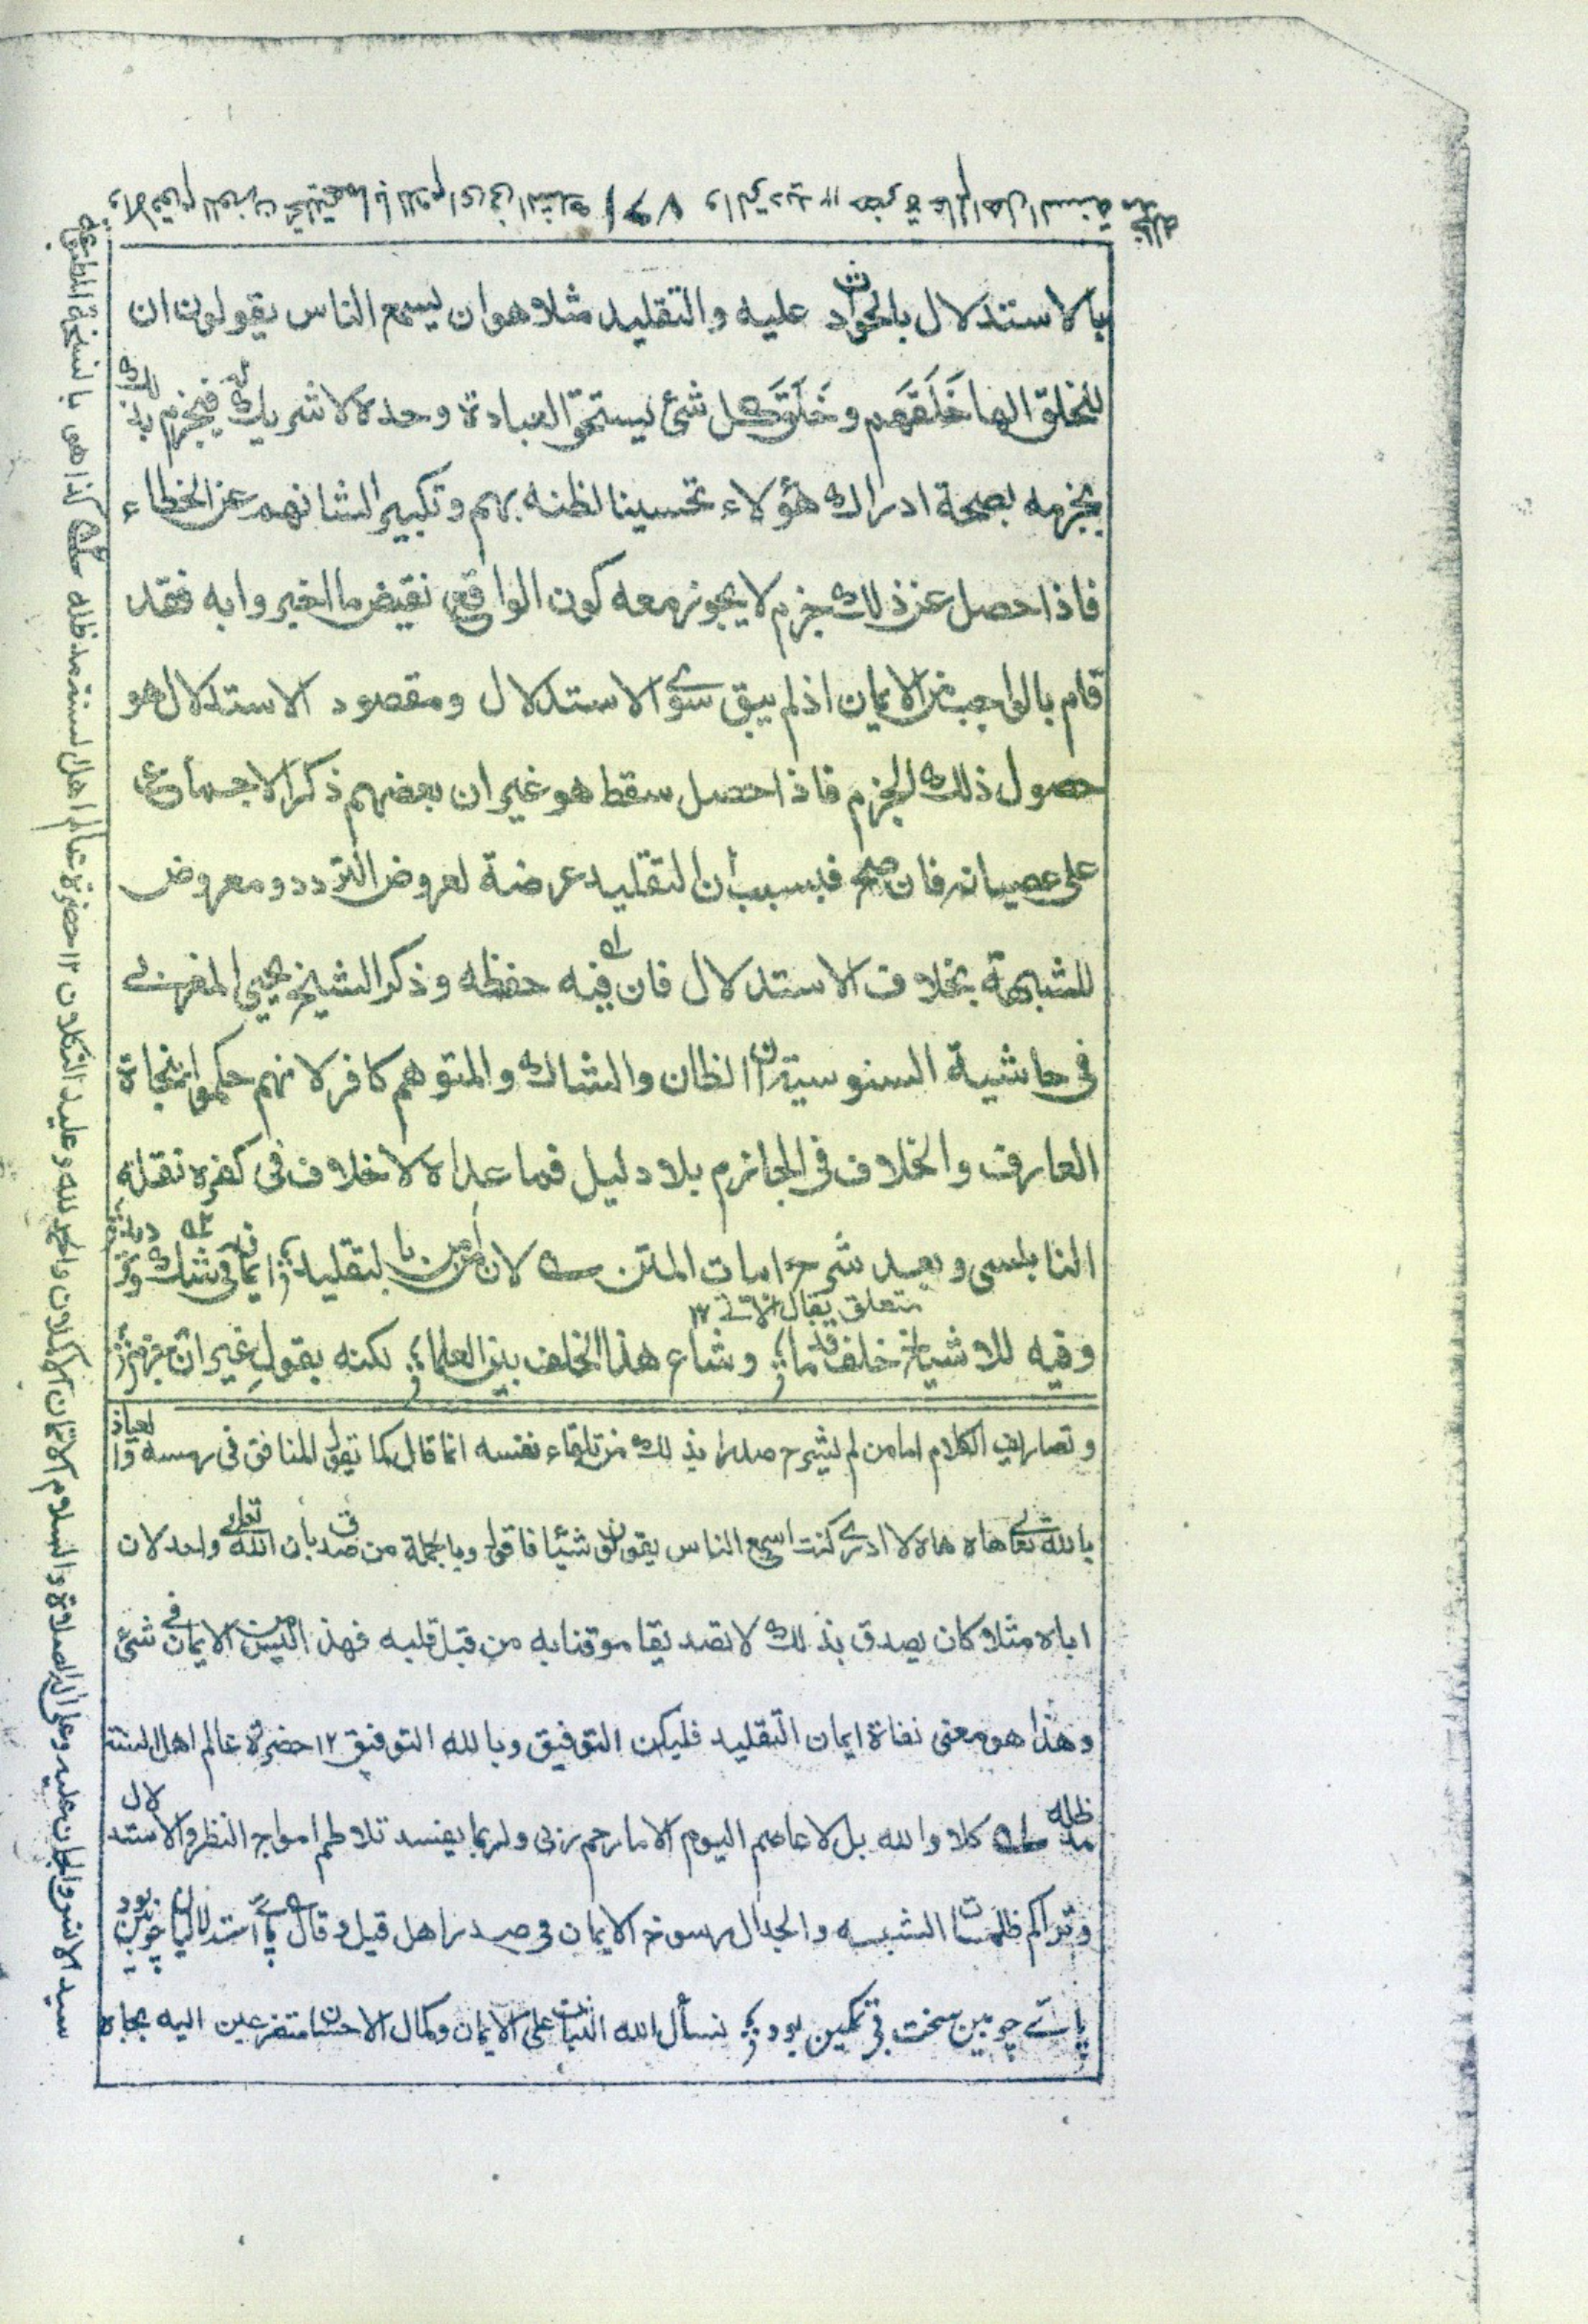 بالاستدلال بالحوادث عليه والتقليد مثلا هو ان يسمع الناس يقولون ان
للخلق الها خَلَقَهم وخَلَقَ كل شئ يستحق العبادة وحده لا شريك له فيجزم بذلك
بجزمه بصحة ادراك هؤلاء تحسينا لظنه بهم وتكبيرا لشانهم عن الخطاء
فاذا حصل عن ذلك جزم لا يجوز معه كون الواقع نقيض ما اخبروا به فقد
قام بالواجب من الايمان اذ لم يبق سوى الاستدلال ومقصود الاستدلال هو
حصول ذلك الجزم فاذا حصل سقط هو غير ان بعضهم ذكر الاجماع
على عصيانه فان صح فبسبب ان التقليد عرضة لعروض التردد ومعروض
للشبهة بخلاف الاستدلال فان فيه حفظه وذكر الشيخ يحيى المغربي
فى حاشية السنوسية ان الظان والشاك والمتوهم كافر لانهم حكموا بنجاة
العارف والخلاف فى الجازم بلا دليل فما عداه لا خلاف فى كفره نقله
النابلسى وبعد شرح ابيات المتن لان من بالتقليد ايمانه فى شك
متعلق بقال الآتى ١٢
وفيه للاشياخ خلف قدما وشاع هذا الخلف بين العلما لكنه يقول غير ان
وتصاريف الكلام اما من لم يشرح صدرا بذلك من تلقاء نفسه انما قال كما يقول المنافق فى رمسه والعياذ
بالله تعالى هاه هاه لا ادرى كنت اسمع الناس يقولون شيئا فاقول وبالجملة من صدق بان الله تعالى واحد لان
اباه مثلا كان يصدق بذلك لا تصديقا موقنا به من قبل قلبه فهذا ليس من الايمان فى شئ
وهذا هو معنى نفاة ايمان التقليد فليكن التوفيق وبالله التوفيق ١٢ حضرة عالم اهل السنة
مد ظله كلا والله بل لا عاصم اليوم الا ما رحم ربى ولربما يفسد تلاطم امواج النظر والاستدلال
وتراكم ظلمات الشبه والجدال رسوخ الايمان فى صدر اهل قيل وقال پائے استدلاليان چوبين بود
پائے چوبين سخت بے تمكين بود نسأل الله الثبات على الايمان وكمال الاحسان متضرعين اليه بجاه
سيد الانس والجان عليه وعلى آله الصلاة والسلام الاتمان الاكملان والحمد لله وعليه التكلان ١٢ حضرة عالم اهل السنة مد ظله